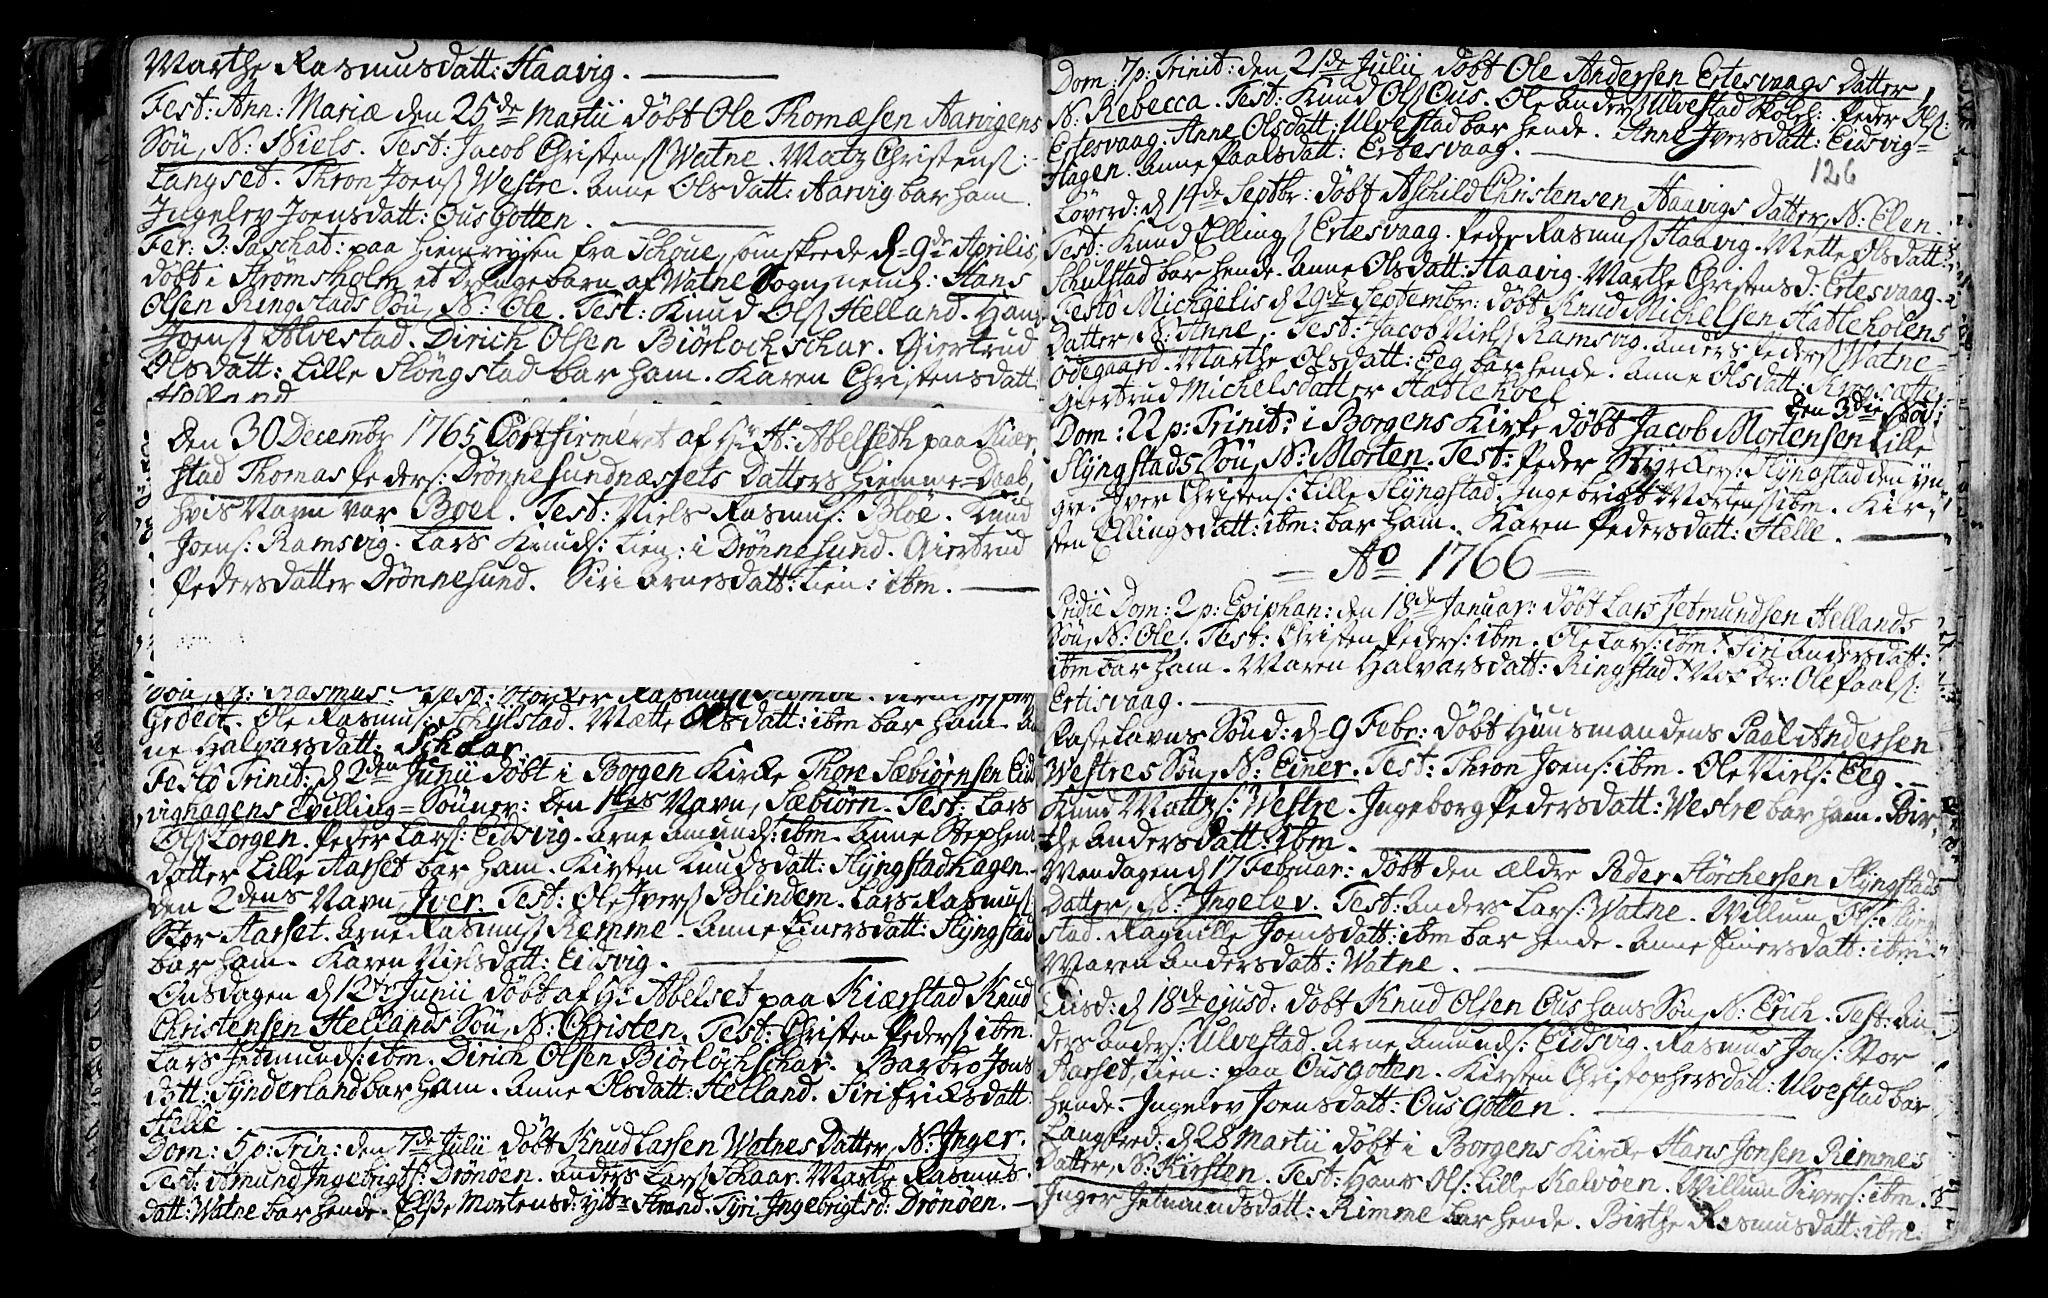 Marthe Rasmusdatt: Haavig.
Fest: Ann: Mariæ den 25de Martii döbt Ole Thomæsen Aarvigens
Sön, N: Niels. Test: Jacob Christens: Watne. Matz Christens:
Langset. Thron Joens: Westre. Anne Olsdatt: Aarvig bar ham.
Ingelev Joensdatt: Ousgotten.
Fer: 3: Paschat: paa hiemreysen fra Schoue, som skeede d. 9de Aprilis,
döbt i Strömsholm et Drengebarn af Watne Sogn, neml: Hans
Olsen Ringstads Sön, N: Ole. Test: Knud Ols: Helland. Hans
Joens: Alvestad. Dirich Olsen Biörlochschar. Giertrud
Olsdatt: Lille Slöngstad bar ham. Karen Christensdatt:
Helland.
Den 30 Decembr 1765 Confirmeret af Hr A: Abelseth paa Kiær-
stad Thomas Peders: Drönnesundnæssets Datters Hiemme=Daab,
hvis Navn var Boel. Test: Niels Rasmus: Bloe. Knud
Joens: Ramsvig. Lars Knuds: tien: i Drönnesund. Giertrud
Pedersdatter Drönnesund. Siri Arnesdatt: tien: ibm.
Sön, N: Rasmus. Test: Storker Rasmus:
Grödt. Ole Rasmus: Schylstad. Mætte Olsdatt: ibm bar ham. An
ne Halvarsdatt: Schaar.
Festo Trinit: d. 2den Junii döbt i Borgen Kircke Thore Sæbiörnsen Eids
vighagens Tvilling=Sönner: Den 1stes Navn, Sæbiörn. Test: Lars
Ols: Lorgen. Peder Lars: Eidsvig. Arne Amunds: ibm. Anne Stephens
datter Lille Aarset bar ham. Kirsten Knudsdatt: Slyngstadhagen.
den 2dens Navn, Iver. Test: Ole Ivers: Blindem. Lars Rasmus:
Stor Aarset. Arne Rasmus: Remme. Anne Einersdatt: Slyngstad
bar ham. Karen Nielsdatt: Eidsvig.
Onsdagen d. 12te Junii döbt af Hr Abelset paa Kiærstad Knud
Christensen Hellands Sön, N: Christen. Test: Christen Peders: ibm.
Lars Jetmunds: ibm. Dirich Olsen Biörlochschar. Barbro Jons
datt: Synderland bar ham. Anne Olsdatt: Helland. Siri Fricksdatt
Helle
Dom: 5 p: Trin: den 7de Julii döbt Knud Larsen Watnes Datter, N: Inger.
Test: Amund Ingebrigts: Drönoen. Anders Lars: Schaar. Marthe Rasmus
datt: Watne bar hende. Elsse Mortensd: Ytre Strand. Tyri Ingebrigtsd: Drönoen.
Dom: 7 p: Trinit: den 21de Julii döbt Ole Andersen Ertesvaags Datter,
N: Rebecca. Test: Knud Ols: Ous. Ole Anders: Ulvestad Skoleh: Peder Ols:
Ertesvaag. Anne Olsdatt: Ulvestad bar hende. Anne Iversdatt: Eidsvig=
Hagen. Anne Paalsdatt: Ertesvaag.
126
Löverd: d. 14de Septbr: döbt Aschild Christensen Haavigs Datter, N: Elen.
Test: Knud Ellings: Ertesvaag. Peder Rasmus: Haavig. Mette Olsdatt:
Schulstad bar hende. Anne Olsdatt: Haavig. Marthe Christensd: Ertesvaag.
Festo Michaelis d. 29de Septembr: döbt Knud Michelsen Hatleholens
Datter, N: Anne. Test: Jacob Niels: Ramsvig. Anders Peders: Watne=
Ödegaard. Marthe Olsdatt: Eeg bar hende. Anne Olsdatt: Krogsætter
Giertrud Michelsdatter Hatlehoel
den 3die Nov:
Dom: 22 p: Trinit: i Borgens Kirke döbt Jacob Mortensen Lille
Slyngstads Sön, N: Morten. Test: Peder Slyngstad den yn
gre. Iver Christens: Lille Slyngstad. Ingebrigt Mortens: ibm. Kir-
sten Ellingsdatt: ibm: bar ham. Karen Pedersdatt: Helle.
Ao 1766
Pridie Dom: 2 p: Epiphan: den 18de Januar: döbt Lars Jetmundsen Hellands
Sön, N: Ole. Test: Christen Peders: ibm. Ole Lars: ibm. Siri Andersdatt:
ibm bar ham. Maren Halvarsdatt: Ringstad. Ole Paals:
Ertisvaag.
Fastelavns Sönd: d. 9 Febr: döbt Huusmandens Paal Andersen
Westres Sön, N: Einer. Test: Thron Joens: ibm. Ole Niels: Eeg.
Knud Mattz: Westre. Ingeborg Pedersdatt: Westre bar ham. Bir-
the Andersdatt: ibm.
Mandagen d. 17 Februar: döbt den ældre Peder Störchersen Slyngstads
Datter, N: Ingelev. Test: Anders Lars: Watne. Willum Ols: Slyng
stad. Ragnille Joensdatt: ibm bar hende. Anne Einersdatt: ibm
Maren Andersdatt: Watne.
Tiisd: d. 18de ejusd: döbt Knud Olsen Ous hans Sön, N: Erich. Test: An
ders Anders: Ulvestad. Arne Amunds: Eidsvig. Rasmus Jons: Stor
Aarset, tien: paa Ousgotten. Kirsten Christophersdatt: Ulvestad bar
hende. Ingelev Joensdatt: Ousgotten.
Langfred: d. 28 Martii döbt i Borgens Kircke Hans Jonsen Remmes
Datter, N: Kirsten. Test: Hans Ols: Lille Kalvöen. Willum Sivers: ibm.
Inger Jetmundsdatt: Rimme bar hende. Birthe Rasmusdatt: ibm.